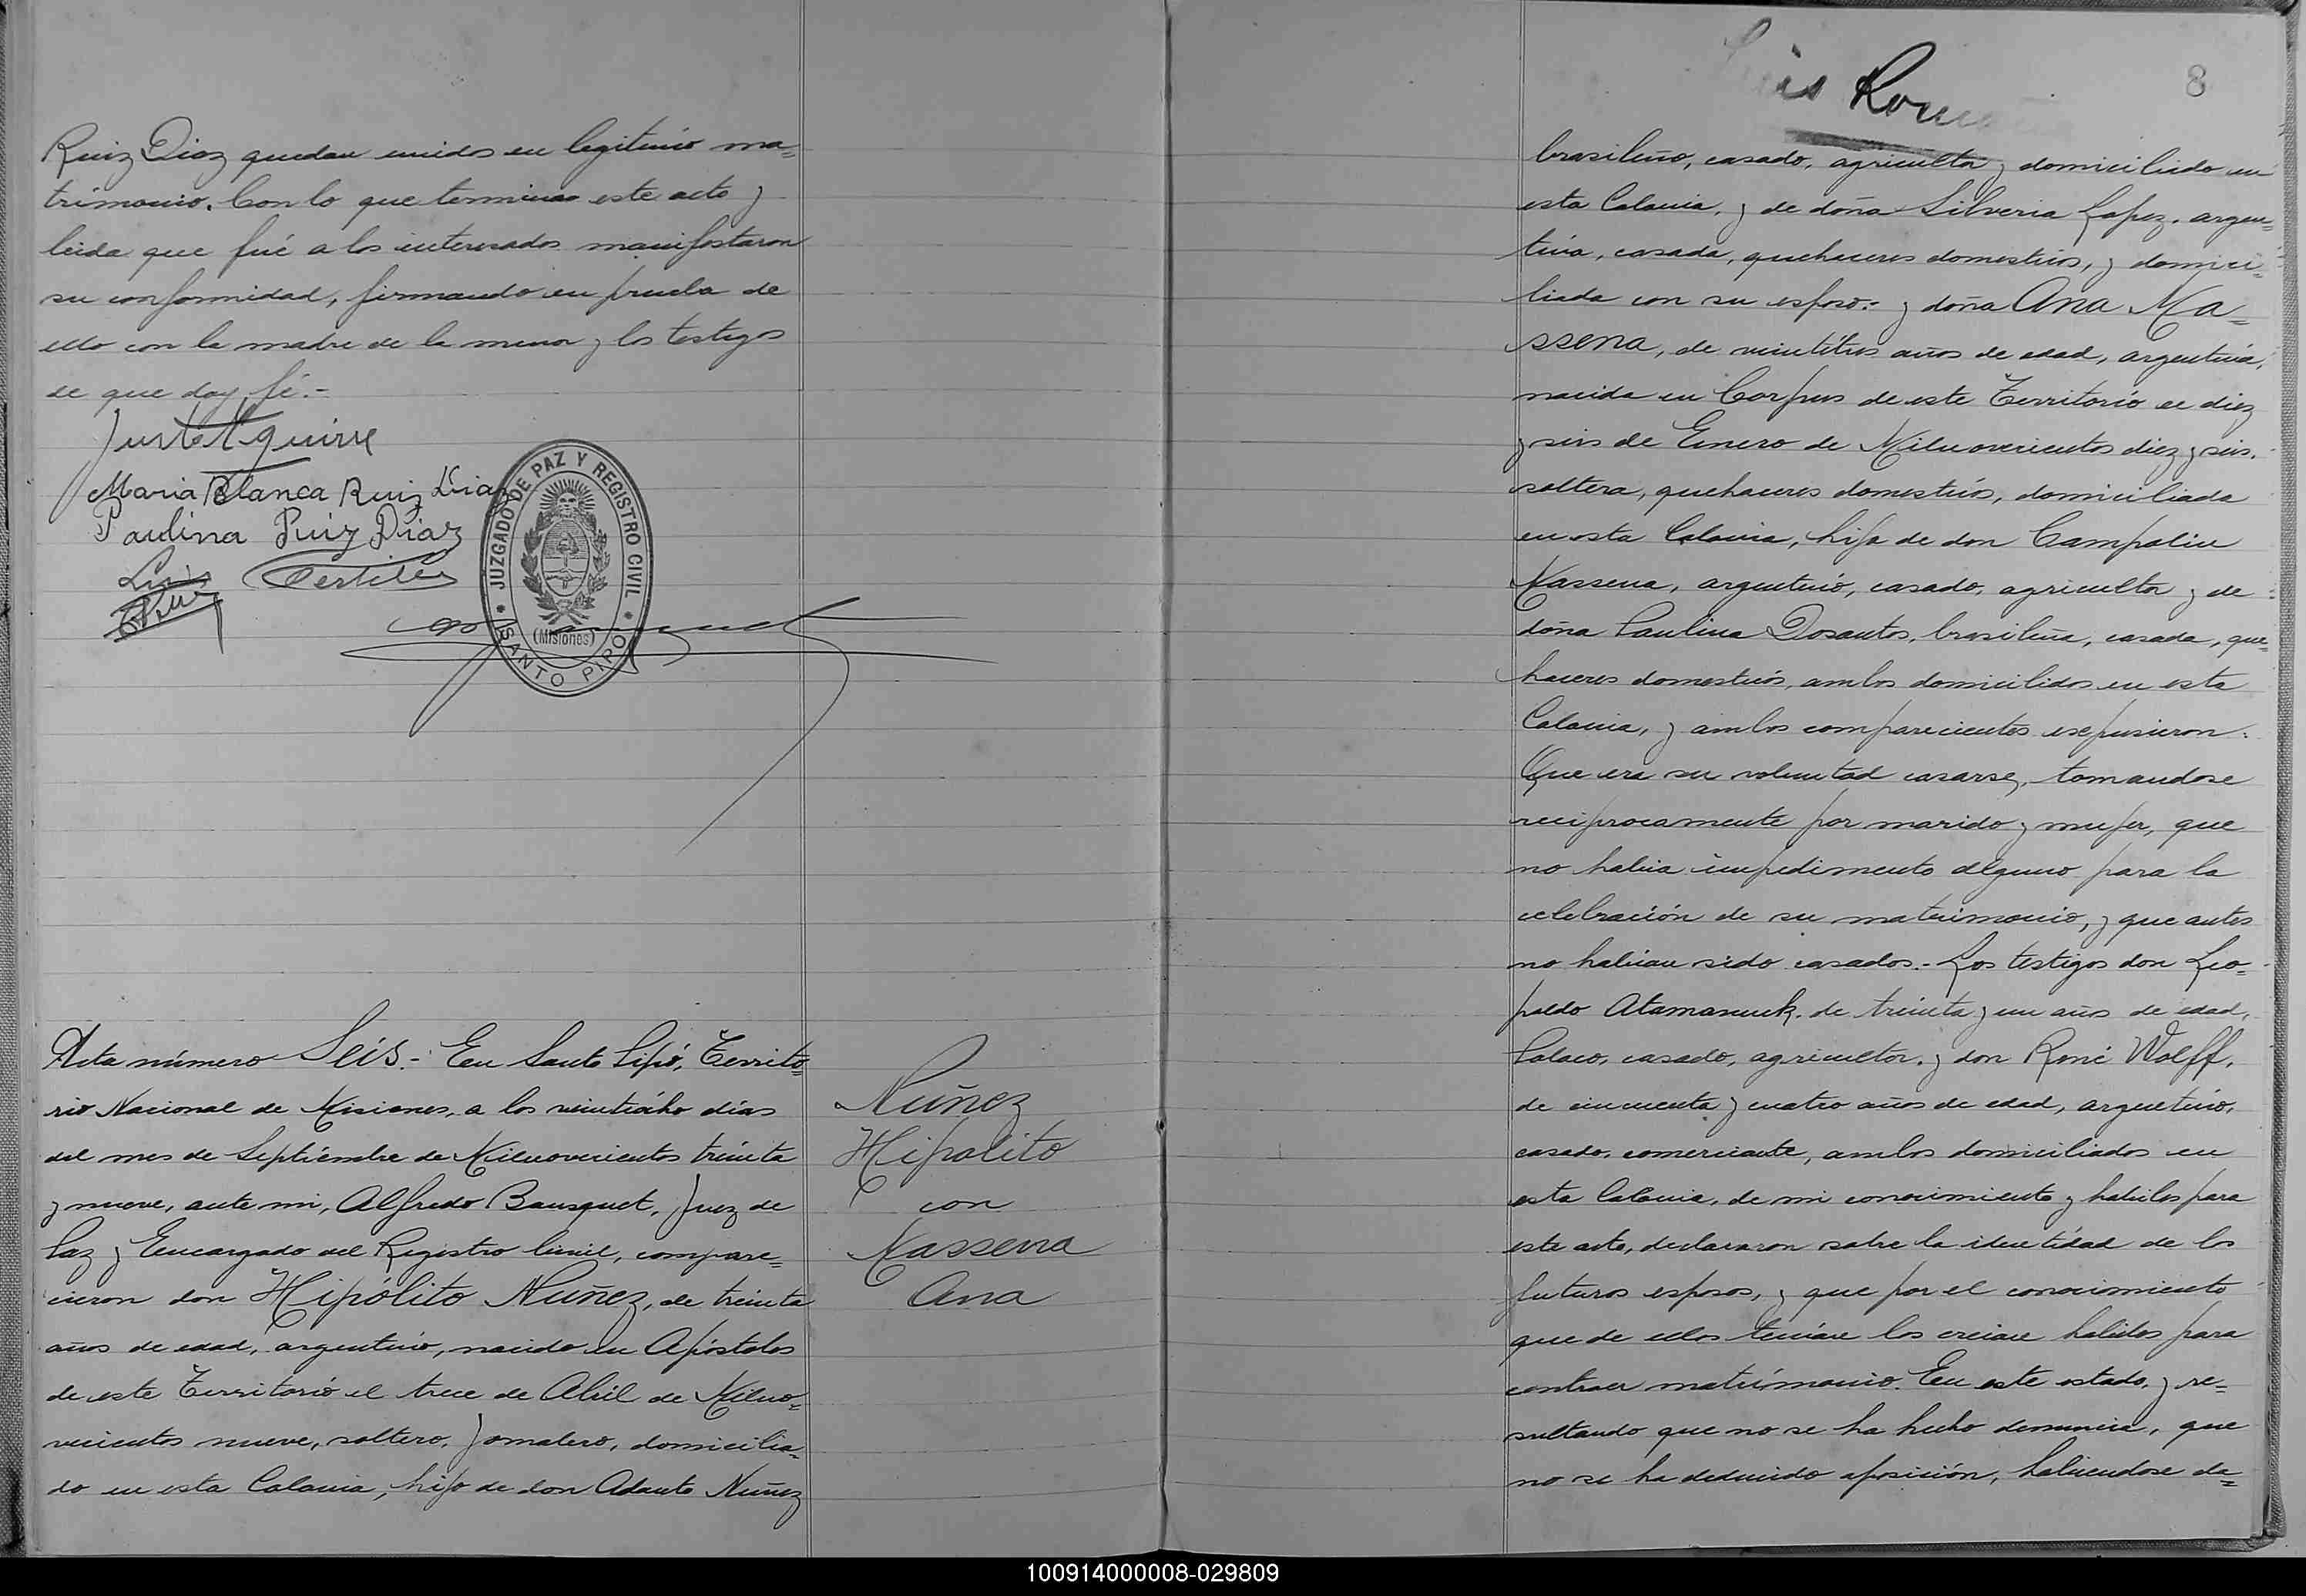 Ruiz Diaz quedan unidos en legitimio ma=
trimonio. Con lo que termina este acto y
leida que fué a los interesados manifestaron
su conformidad, firmando en prueba de
ello con la madre de la menor y los testigos
de que doy fé.-
Maria Blanca Ruiz Diaz
Paulina Ruiz Diaz
Luis
JUZGADO DE PAZ Y REGISTRO CIVIL
(Misiones)
SANTO PIPO
Acta número Seis.- En Santo Pipó, Territo=
rio Nacional de Misiones, a los veintiocho días
del mes de Septiembre de Milnovecientos treinta
y nueve, ante mi, Alfredo Bausquet, Juez de
Paz y Encargado del Registro Civil, compare=
cieron don Hipólito Nuñez, de treinta
años de edad, argentino, nacido en Apóstoles
de este Territorio el trece de Abril de Milno=
vecientos nueve, soltero, Jornalero, domicilia=
do en esta Colonia, hijo de don Adauto Nuñez
Nuñez
Hipolito
con
Massena
Ana
8
brasileño, casado, agricultor y domiciliado en
esta Colonia, y de doña Silveria Lopez, argen=
tina, casada, quehaceres domesticos, y domici=
liada con su esposo: y doña Ana Ma=
ssena, de veintitres años de edad, argentina,
nacida en Corpus de este Territorio el diez
y seis de Enero de Milnovecientos diez y seis,
soltera, quehaceres domesticos, domiciliada
en esta Colonia, hija de don Campolin
Massena, argentino, casado, agricultor y de
doña Paulina Dosantos, brasileña, casada, que=
haceres domesticos, ambos domicilidos en esta
Colonia, y ambos comparecientes expusieron:
Que era su voluntad casarse, tomandose
reciprocamente por marido y mujer, que
no habia impedimento alguno para la
celebración de su matrimonio, y que antes
no habian sido casados.- Los testigos don Leo=
poldo Atamanuk, de treinta y un años de edad,
Polaco, casado, agricultor, y don René Wolff,
de cincuenta y cuatro años de edad, argentino,
casado, comerciante, ambos domiciliados en
esta Colonia, de mi conocimiento y habiles para
este acto, declararon sobre la identidad de los
futuros esposos, y que por el conocimiento
que de ellos tenian los creian habiles para
contraer matrimonio. En este estado, y re=
sultando que no se ha hecho denuncia, que
no se ha deducido oposición, habiendose de=
100914000008-029809